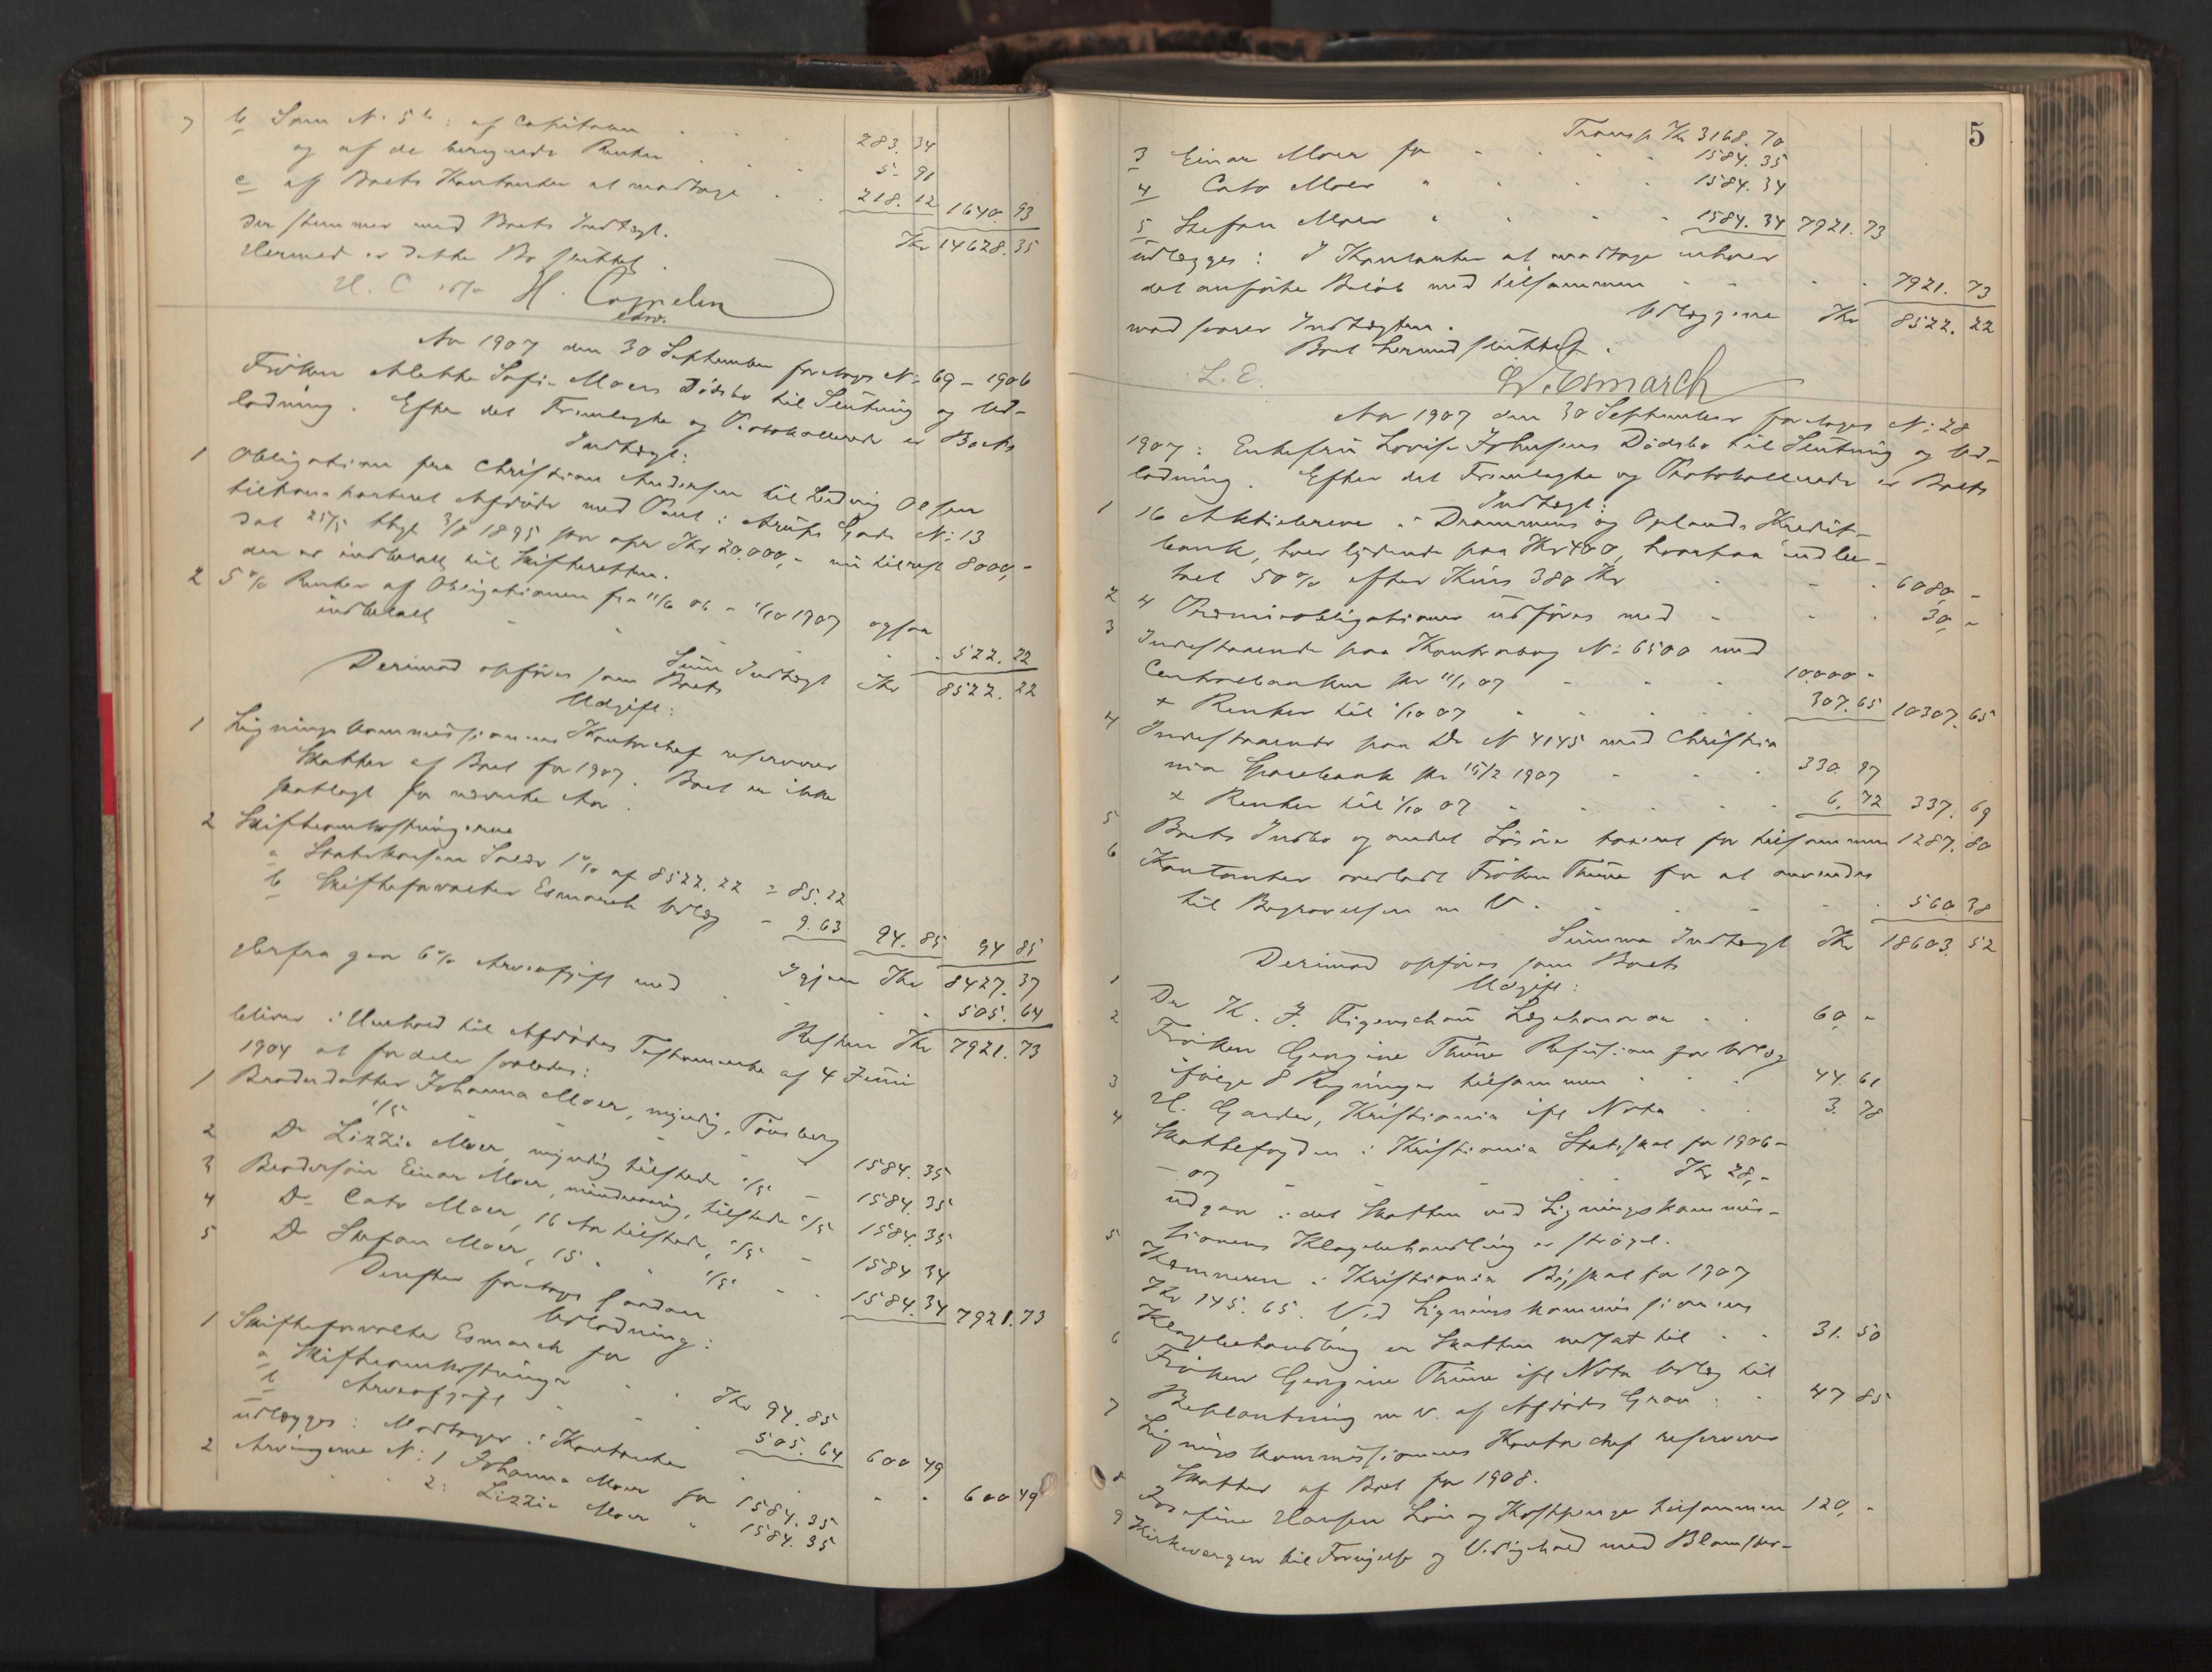 7 b Som N. 5 b: af Capitalen 283. 34
og af de beregnede Renter 5. 91
c af Boets Kontanter at modtage 218. 12 1640. 93
der stemmer med Boets Indtægt. Kr 14628. 35
Hermed er dette Bo sluttet.
H. Coppelen
edsv.
Aar 1907 den 30 September foretoges N: 69 – 1906
Frøken Alethe Sofie Moers Dødsbo til Slutning og Ud-
lodning. Efter det Fremlagte og Protokollerede er Boets
Indtægt:
1 Obligation fra Christian Andersen til Ludvig Olsen
transporteret Afdøde med Pant i Arups Gade N: 13
dat 25/5 tlgt 3/8 1895 stor opr Kr 20.000,- nu tilrest 8000,-
der er indbetalt til Skifteretten.
2 5 % Renter af Obligationen fra 11/6 06 – 1/10 1907 ogsaa
indbetalt 522. 22
Sum Indtægt Kr 8522. 22
Derimod opføres som Boets
Udgift:
1 Ligningskommissionens Kontorchef reserverer
Skatter af Boet for 1907. Boet er ikke
skatlagt for nævnte Aar.
2 Skifteomkostningerne
a Statskassens Salær 1 % af 8522. 22 = 85. 22
b Skifteforvalter Esmarch Udlæg - 9. 63 94. 85 94 85
Igjen Kr 8427. 37
Herfra gaar 6 % Arveafgift med 505. 64
Resten Kr 7921. 73
bliver i Henhold til Afdødes Testamente af 4 Juni
1904 at fordele saaledes:
1 Broderdatter Johanna Moer, myndig, Tønsberg
1/5 1584. 35
2 Do Lizzie Moer, myndig tilstede 1/5 – 1584. 35
3 Brodersøn Einar Moer, mindreaarig, tilstede 1/5 1584. 35
4 Do Cato Moer, 16 Aar tilstede, 1/5 – 1584 34
5 Do Stefan Moer, 15 " " 1/5 1584. 34 7921. 73
Derefter foretoges saadan
Udlodning:
1 Skifteforvalter Esmarch for
a Skifteomkostninger Kr 94. 85
b Arveafgift 505. 64 600 49
udlægges: Modtager i Kontanter 600 49
2 Arvingerne N: 1 Johanna Moer for 1584. 35
2: Lizzie Moer " 1584. 35
5
Transp. Kr 3168. 70
3 Einar Moer for 1584. 35
4 Cato Moer " 1584. 34
5 Stefan Moer " 1584. 34 7921. 73
udlægges: I Kontanter at modtage enhver
det anførte Beløb med tilsammen 7921. 73
Udlæggene Kr 8522. 22
modsvarer Indtægten.
Boet hermed sluttet.
L. E. Esmarch
Aar 1907 den 30 September foretoges N: 28
1907: Enkefru Lovise Johnsens Dødsbo til Slutning og Ud-
lodning. Efter det Fremlagte og Protokollerede er Boets
Indtægt:
1 16 Aktiebreve i Drammens og Oplands Kredit-
bank, hver lydende paa Kr 400, hvorpaa indbe-
talt 50 % efter Kurs 380 Kr 6080, -
2 4 Præmieobligationer udføres med 30, -
3 Indestaaende paa Kontrabog N: 6500 med
Centralbanken pr 11/1 07 10.000 -
+ Renter til 1/10 07 307. 65 10307. 65
4 Indestaaende paa Do N 4145 med Christia
nia Sparebank pr 15/2 1907 330. 97
+ Renter til 1/10 07 6. 72 337. 69
5 Boets Indbo og andet Løsøre taxeret for tilsammen 1287. 80
6 Kontanter overladt Frøken Thune for at anvendes
til Begravelsen m V. 560. 38
Summa Indtægt Kr 18603. 52
Derimod opføres som Boets
Udgift:
1 Dr K. J. Figenschau Lægehonorar 60, -
2 Frøken Georgine Thune Refusion for Udlæg
ifølge 8 Regninger tilsammen 44. 61
3 H. Garder, Kristiania ifl Nota 3. 78
4 Skattefogden i Kristiania Statsskat for 1906-
– 07 Kr 28,-
udgaar i det Skatten ved Ligningskommis-
sionens Klagebehandling er strøget.
5 Kæmneren i Kristiania Byskat for 1907
Kr 145. 65. Ved Ligningskommissionens
Klagebehandling er Skatten nedsat til 31. 50
6 Frøken Georgine Thune ifl Nota Udlæg til
Beplantning m v. af Afdødes Grav 47 85
7 Ligningskommissionens Kontorchef reserverer
Skatter af Boet for 1908.
8 Josefine Hansen Løn og Kostpenge tilsammen 120, -
9 Kirkevergen til Fornyelse og Vedligehold med Blomster-